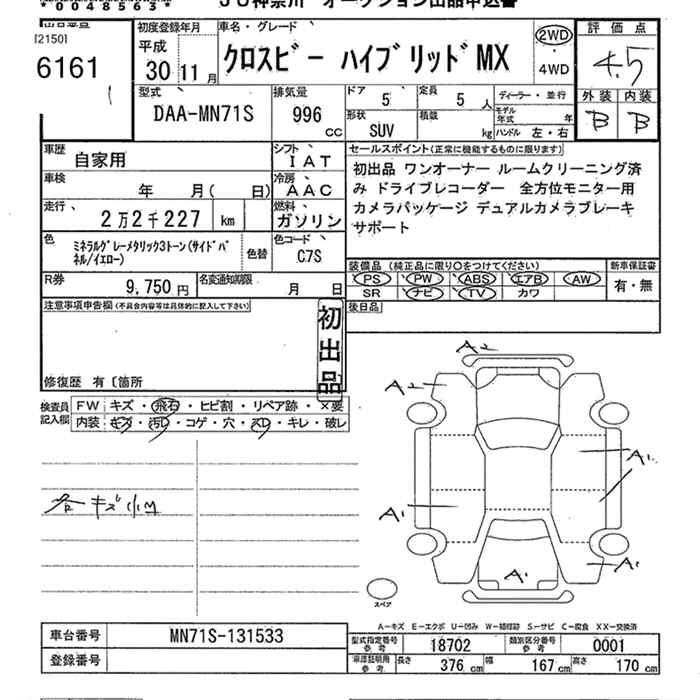 *00048563*
JU神奈川 オークション出品申込書
出品番号
[2150]
6161
初度登録年月
平成
30 11月
車名・グレード
クロスビー ハイブリッドMX
2WD
・
4WD
評価点
4.5
外装 内装
B B
型式
DAA-MN71S
排気量
996
cc
ドア
5
定員
5 人
ディーラー・並行
モデル年式 年
形状
SUV
積載
kg
ハンドル 左・右
車歴
自家用
シフト
IAT
車検
年 月( 日)
冷房
AAC
走行
2万2千227 km
燃料
ガソリン
色
ミネラルグレーメタリック3トーン(サイドパネル/イエロー)
色替
色コード
C7S
R券
9,750円
名変通知期限
月 日
セールスポイント(正常に機能するものに限ります)
初出品 ワンオーナー ルームクリーニング済
み ドライブレコーダー 全方位モニター用
カメラパッケージ デュアルカメラブレーキ
サポート
装備品(純正品に限り○をつけてください)
新車保証書
PS PW ABS エアB AW
SR ナビ TV カワ
有・無
注意事項申告欄(不具合内容等は具体的に記入して下さい)
初出品
後日品
修復歴 有〔箇所
検査員
記入欄
FW キズ・飛石・ヒビ割・リペア跡・×要
内装 キズ・汚レ・コゲ・穴・スレ・キレ・破レ
各キズ凹
A2
A2
A1
A1
A1
A1
スペア
A−キズ E−エクボ U−凹み W−補修跡 S−サビ C−腐食 XX−交換済
車台番号 MN71S-131533
登録番号
型式指定番号
参考
18702
類別区分番号
参考
0001
車庫証明用
参考
長さ 376 cm 幅 167 cm 高さ 170 cm